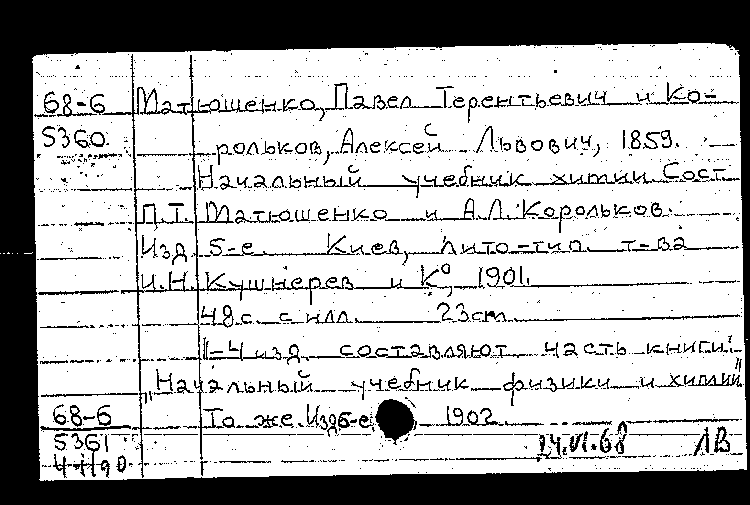 68-6 Матюшенко, Павел Терентьевич и Ко-
5360 рольков, Алексей Львович, 1859.
Начальный учебник химии. Сост.
П.Т. Матюшенко и А.Л. Корольков.
Изд. 5-е. Киев, лито-тип. т-ва
И.Н. Кушнерев и К°, 1901.
48 с. с илл. 23 см.
1-4 изд. составляют часть книги:
"Начальный учебник физики и химии"
68-6 То же. Изд. 6-е 1902.
5361 24.VI.68 ЛВ